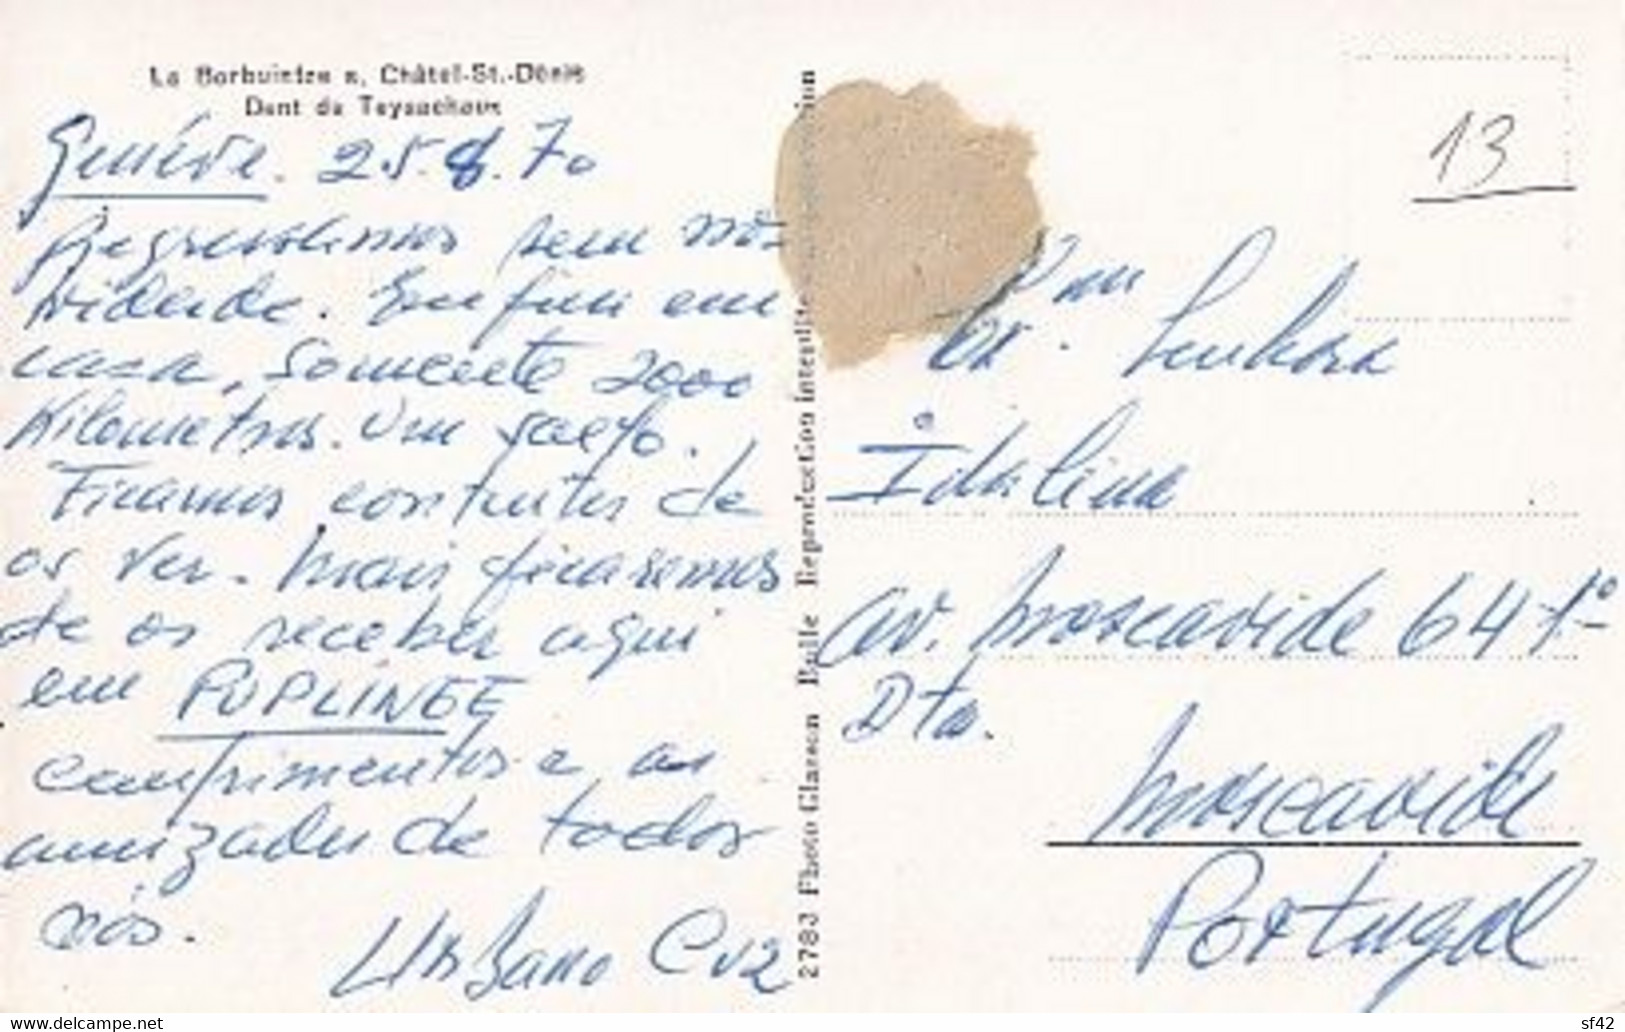 La Borbuintze s, Châtel-St.-Dénis
Dent de Teysachaux
Genéve. 25.8.70
Regressamos sem no-
vidade. Em fim em
casa, somente 2000
Kilometros. Um salto.
Ficamos contentes de
os ver. Mais ficaremos
de os receber aqui
em PUPLINGE
comprimentos e as
amizades de todos
nós.
Urbano Cruz
2783 Photo Glasson Bulle Reproduction interdite
13
Exma
Sr. Senhora
Idalina
Av. Moscavide 64-1º-
Dto.
Moscavide
Portugal
www.delcampe.net
sf42